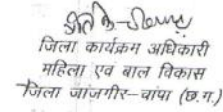 जिला कार्यक्रम अधिकारी
महिला एवं बाल विकास
जिला जांजगीर-चांपा (छ.ग.)